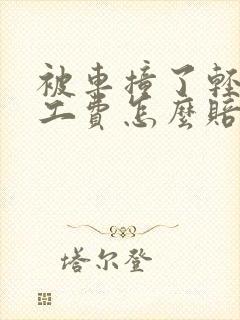 被車撞了輕
工費怎麼賠
塔尔登